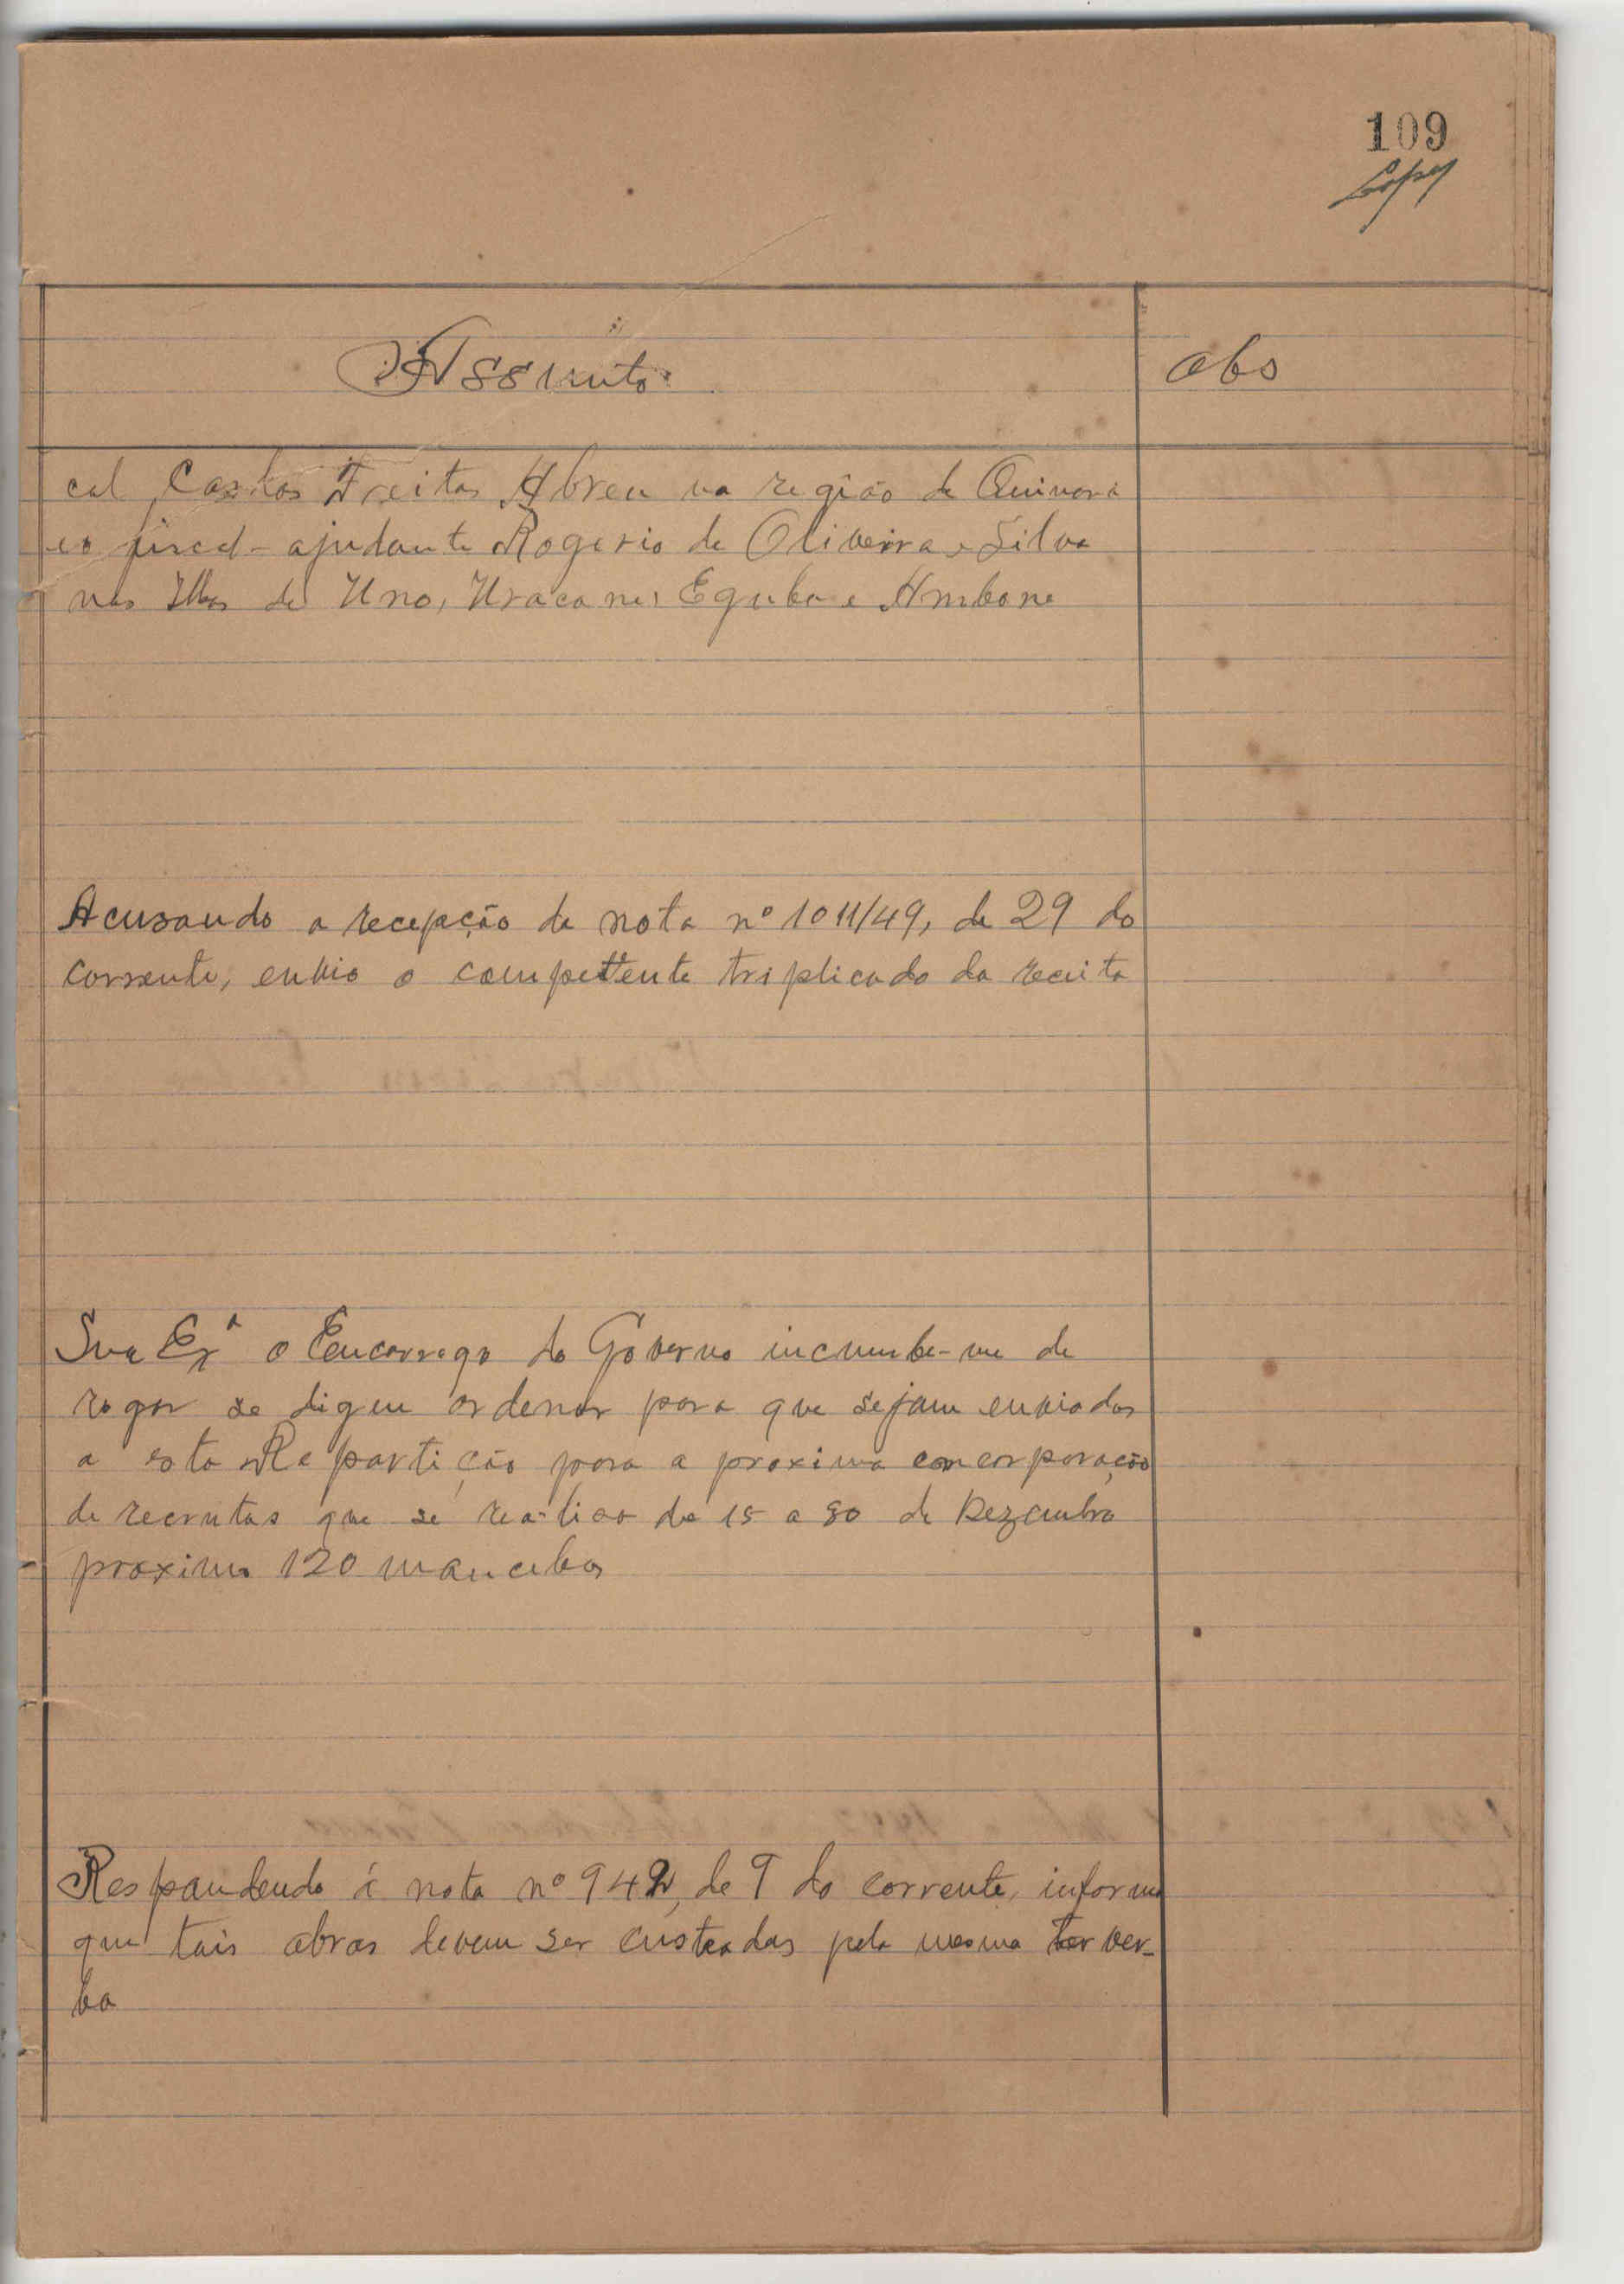 109
Lopes
Assunto
Obs
cal Carlos Freitas Abreu na região de Quinara
e o fiscal-ajudante Rogerio de Oliveira e Silva
nas Ilhas de Uno, Uracane, Eguba e Ambone
Acusando a recepção da nota nº 1011/49, de 29 do
corrente, envio o competente triplicado da receita
Sua Exª o Encarrego do Governo incumbe-me de
rogar se digne ordenar para que sejam enviados
a esta Repartição para a proxima concorporação
de recrutas que se realisa de 15 a 30 de Dezembro
proximo 120 mancebos
Respondendo á nota nº 942, de 9 do corrente, informo
que tais obras devem ser custeadas pela mesma ver-
ba